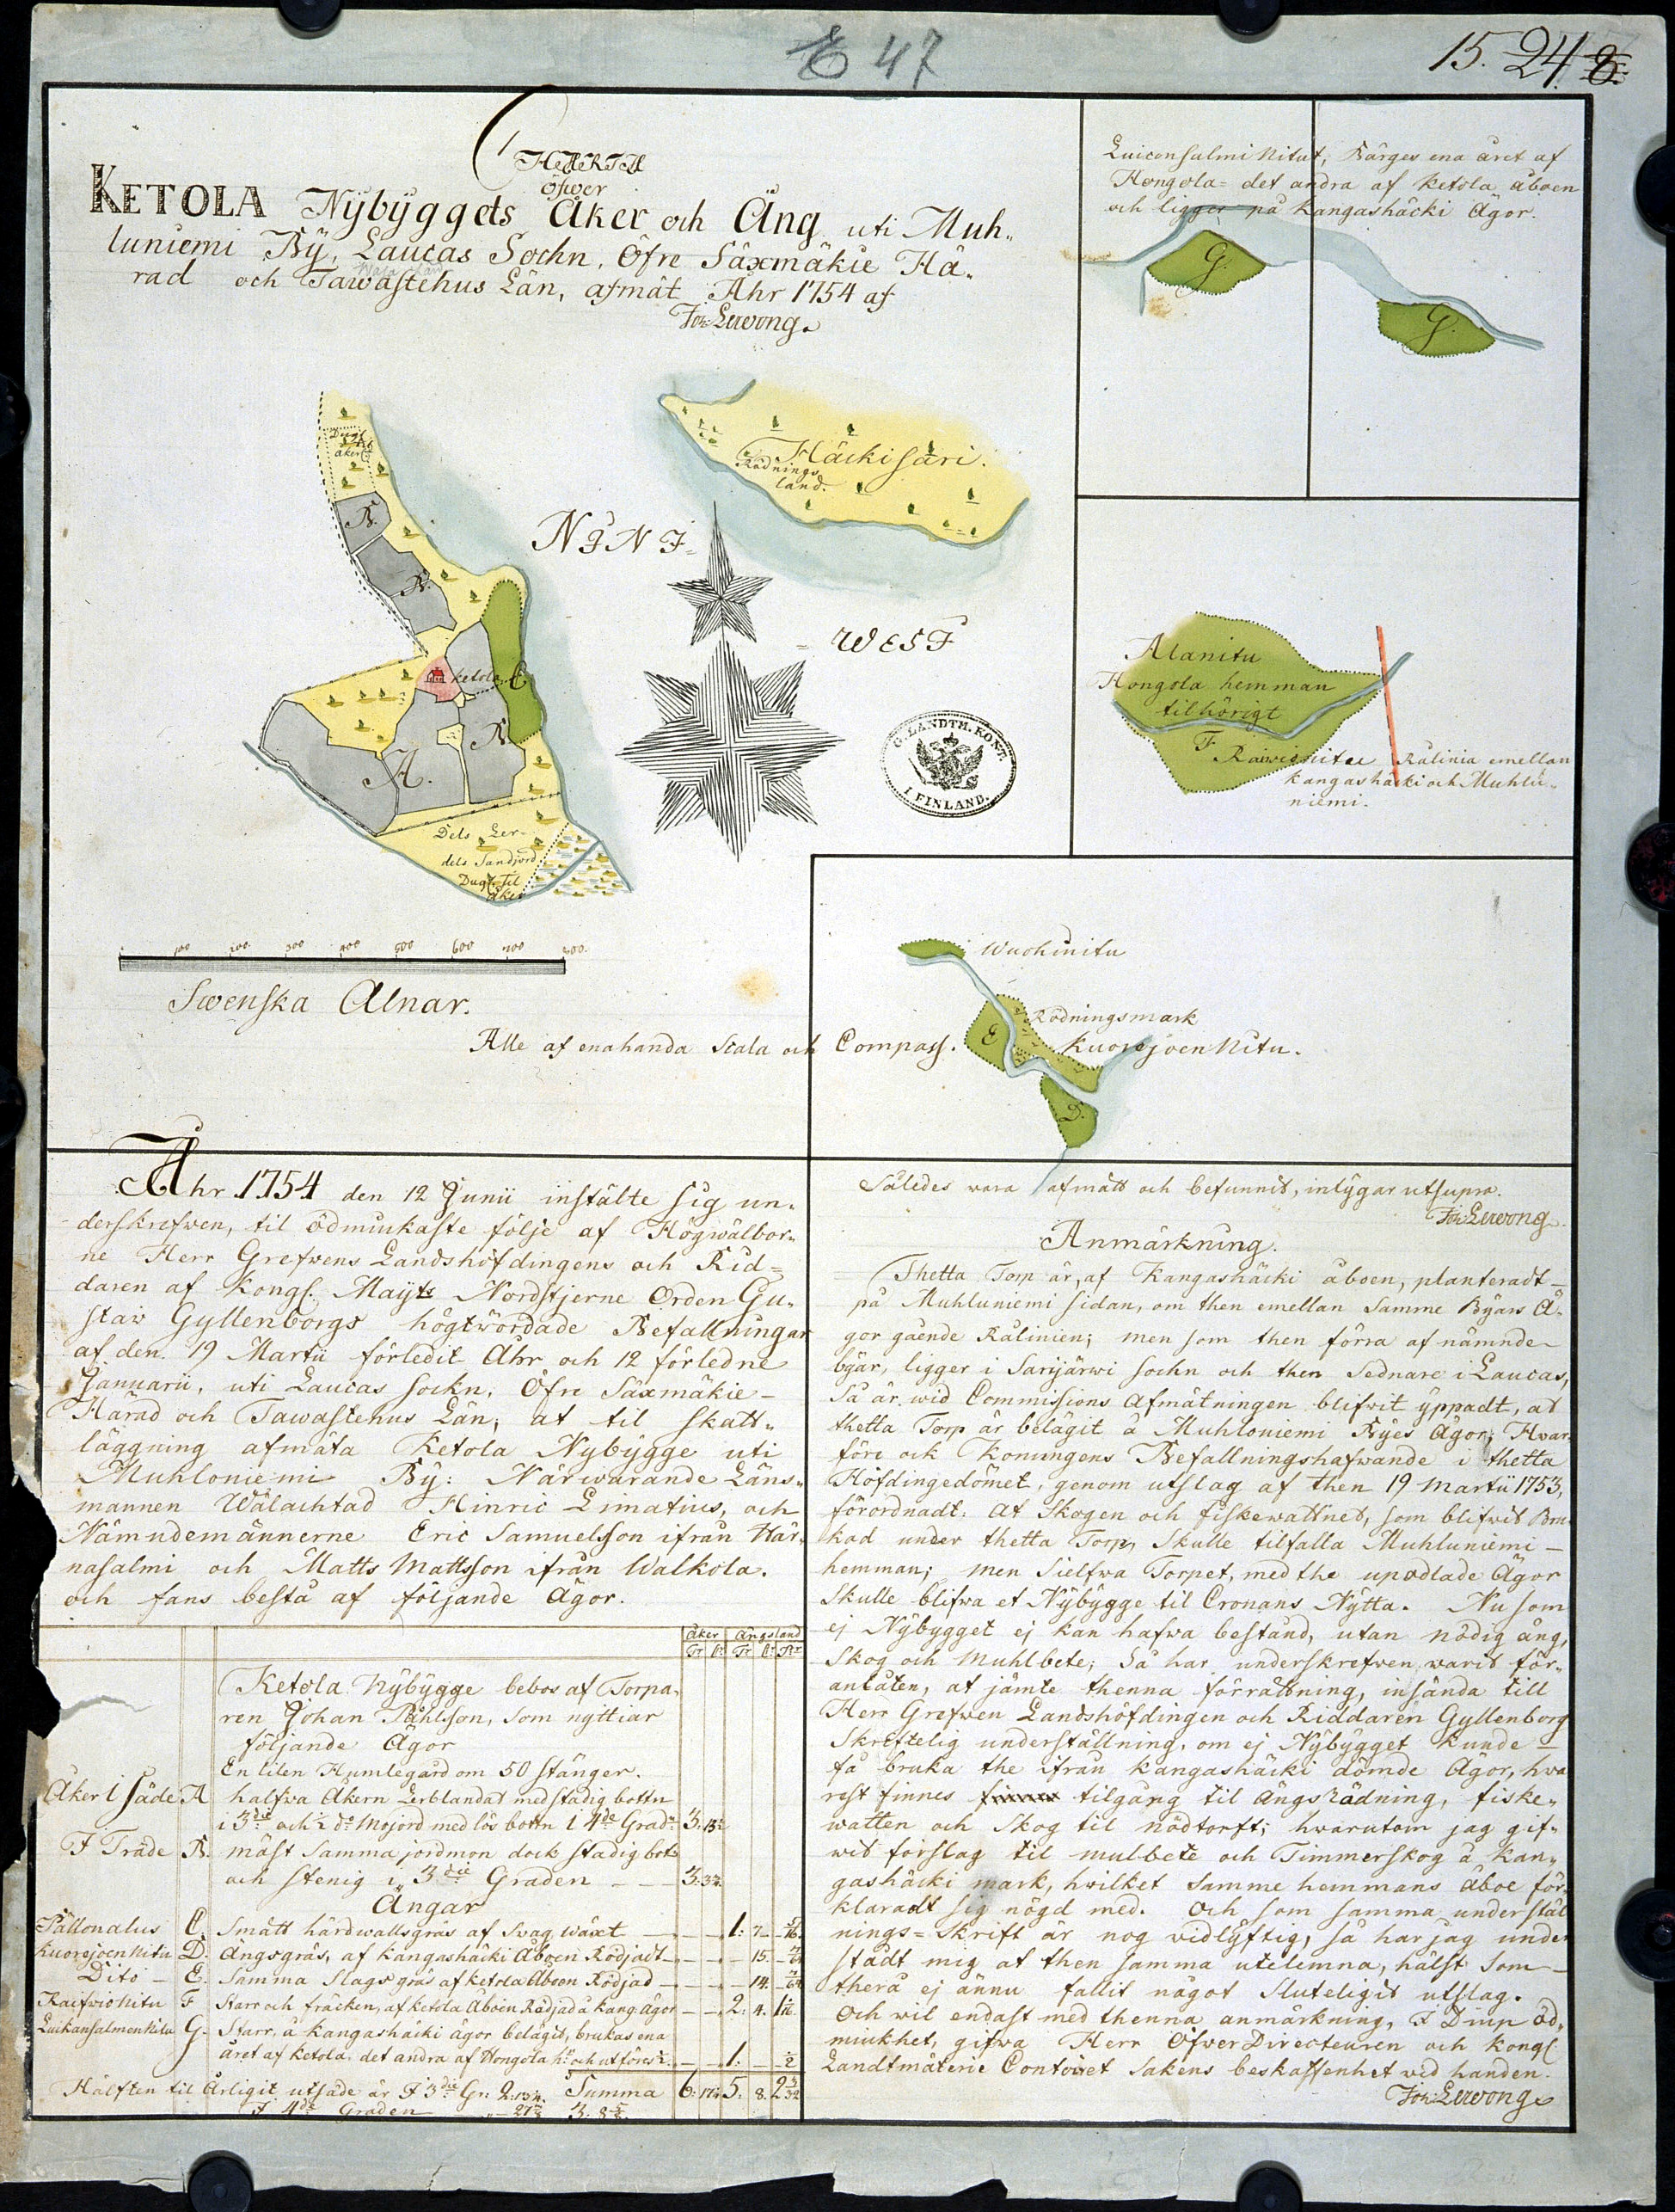 E 47
15. 24. 8
CHARTA
öfwer
KETOLA Nÿbÿggets Åker och Äng uti Muh-
luniemi Bÿ, Laucas Sochn, Öfre Säxmäkie Hä-
rad och Tawastehus Län, afmät Åhr 1754 af
Joh: Lerwong.
Luiconsalmi Nitut, Bärges ena året af
Hongola= det andra af Ketola åboen
och ligger på Kangashäcki Ägor.
G.
G.
Dugl. til
åker
B.
B.
Ketola
C.
B.
A.
Dels Ler-
dels Sandjord
Dugl. til
åker
Häckisari.
Rödnings
land.
WEST
G. LANDTM. KONT.
I FINLAND.
Alanitu
Hongola hemman
tilhörigt
F
Raiwionitu
Rålinia emellan
Kangashäcki och Muhlu-
niemi.
100 200 300 400 500 600 700 800.
Swenska Alnar.
Alle af enahanda Scala och Compass.
Wuohinitu
Rödningsmark
E
Kuorejoen Nitu.
D.
Åhr 1754 den 12 Junii instälte sig un-
derskrefwen, til ödmiukaste följe af Högwälbor-
ne Herr Grefwens Landshöfdingens och Rid-
daren af Kongl. Maÿts Nordstjerne Orden Gu-
staw Gyllenborgs högtwördade Befallningar
af den 19 Martii förledit Åhr och 12 förledne
Januarii, uti Laucas sockn, Öfre Säxmäkie-
Härad och Tawastehus Län, at til skatt-
läggning afmäta Ketola Nybÿgge uti
Muhloniemi Bÿ: Närwarande Läns-
mannen Wälachtad Hinric Limatius, och
Nämndemännerne Eric Samuelsson ifrån Har-
nasalmi och Matts Mattsson ifrån Walkola.
och fans bestå af följande Ägor.
Åker Ängsland
Ketola Nÿbÿgge bebos af Torpa-
ren Johan Påhlsson, som nyttiar
följande Ägor
En liten Humlegård om 50 stänger.
Åker i Säde A halfwa Åkern Lerblandat med stadig bottn
i 3die och ½ do Mojord med lös bottn i 4de Graden 3: 13½
I Träde B. mäst samma jordmon dock stadig bott
och stenig i 3die Graden - - 3: 3¾
Ängar
Pällonalus C. Smått hårdwallsgräs af Swag wäxt 1: 7
Kuorejoen Nitu D. Ängsgräs, af Kangashäcki Åboen Rödjadt 15.
Dito - E. Samma slags gräs af Ketola Åboen Rödjad 14.
Raifwio Nitu F Starr och fräcken, af Ketola Åboen Rödjad å Kang: ägor 2: 4.
Luikansalmen Nitu G. Starr, å Kangashäcki ägor belägit, brukas ena
året af Ketola, det andra af Hongola hn och utföres ½ 1: ½
Hälften til Årligit utsäde är I 3die Gr: Summa 6: 17¼ 5: 8. 2 3/32
I 4de Graden
Således wara afmätt och befunnit, intÿgar utsupra.
Joh: Lerwong.
Anmärkning.
Thetta Torp är, af Kangashäcki åboen, planteradt
på Muhluniemi sidan, om then emellan samme Bÿars Ä-
gor gående Rålinien; men som then förra af nämnde
bÿar, ligger i Sarijärwi sochn och then Sednare i Laucas,
Så är wid Commissions Afmätningen blifwit ÿppadt, at
thetta Torp är belägit å Muhloniemi Bÿes Ägor; Hvar-
före ock Konungens Befallningshafwande i thetta
Höfdingedömet, genom utslag af then 19 Martii 1753,
förordnadt: At Skogen och fiskewattned, som blifwit Bru-
kad under thetta Torp, skulle tilfalla Muhluniemi
hemman; men Sielfwa Torpet, med the upodlade Ägor
skulle blifwa et Nÿbÿgge til Cronans Nÿtta. Nu som
ej Nÿbygget ej kan hafwa bestånd, utan nödig äng,
Skog och Muhlbete; Så har underskrefwen warit för-
anlåten, at jämte thenna förrättning, insända till
Herr Grefwen Landshöfdingen och Riddaren Gyllenborg
Skriftelig underställning, om ej Nÿbÿgget kunde
få bruka the ifrån Kangashäcki dömde Ägor, hwa-
rest finnes tilgång til Ängsrödning, fiske-
watten och Skog til nödtorft; hwarutom jag gif-
wit förslag til mulbete och Timmerskog å Kan-
gashäcki mark, hwilket samme hemmans åboe för-
klaradt sig nögd med. Och som samma understäl-
nings=skrift är nog widlÿftig, så har jag under-
stådt mig at then samma utelemna, hälst som
therå ej ännu fallit något Sluteligit utslag.
Och wil endast med thenna anmärkning, I Diup öd-
miukhet, gifwa Herr ÖfwerDirecteuren och Kongl
Landtmäterie Contoiret Sakens beskaffenhet wid handen.
Joh: Lerwong